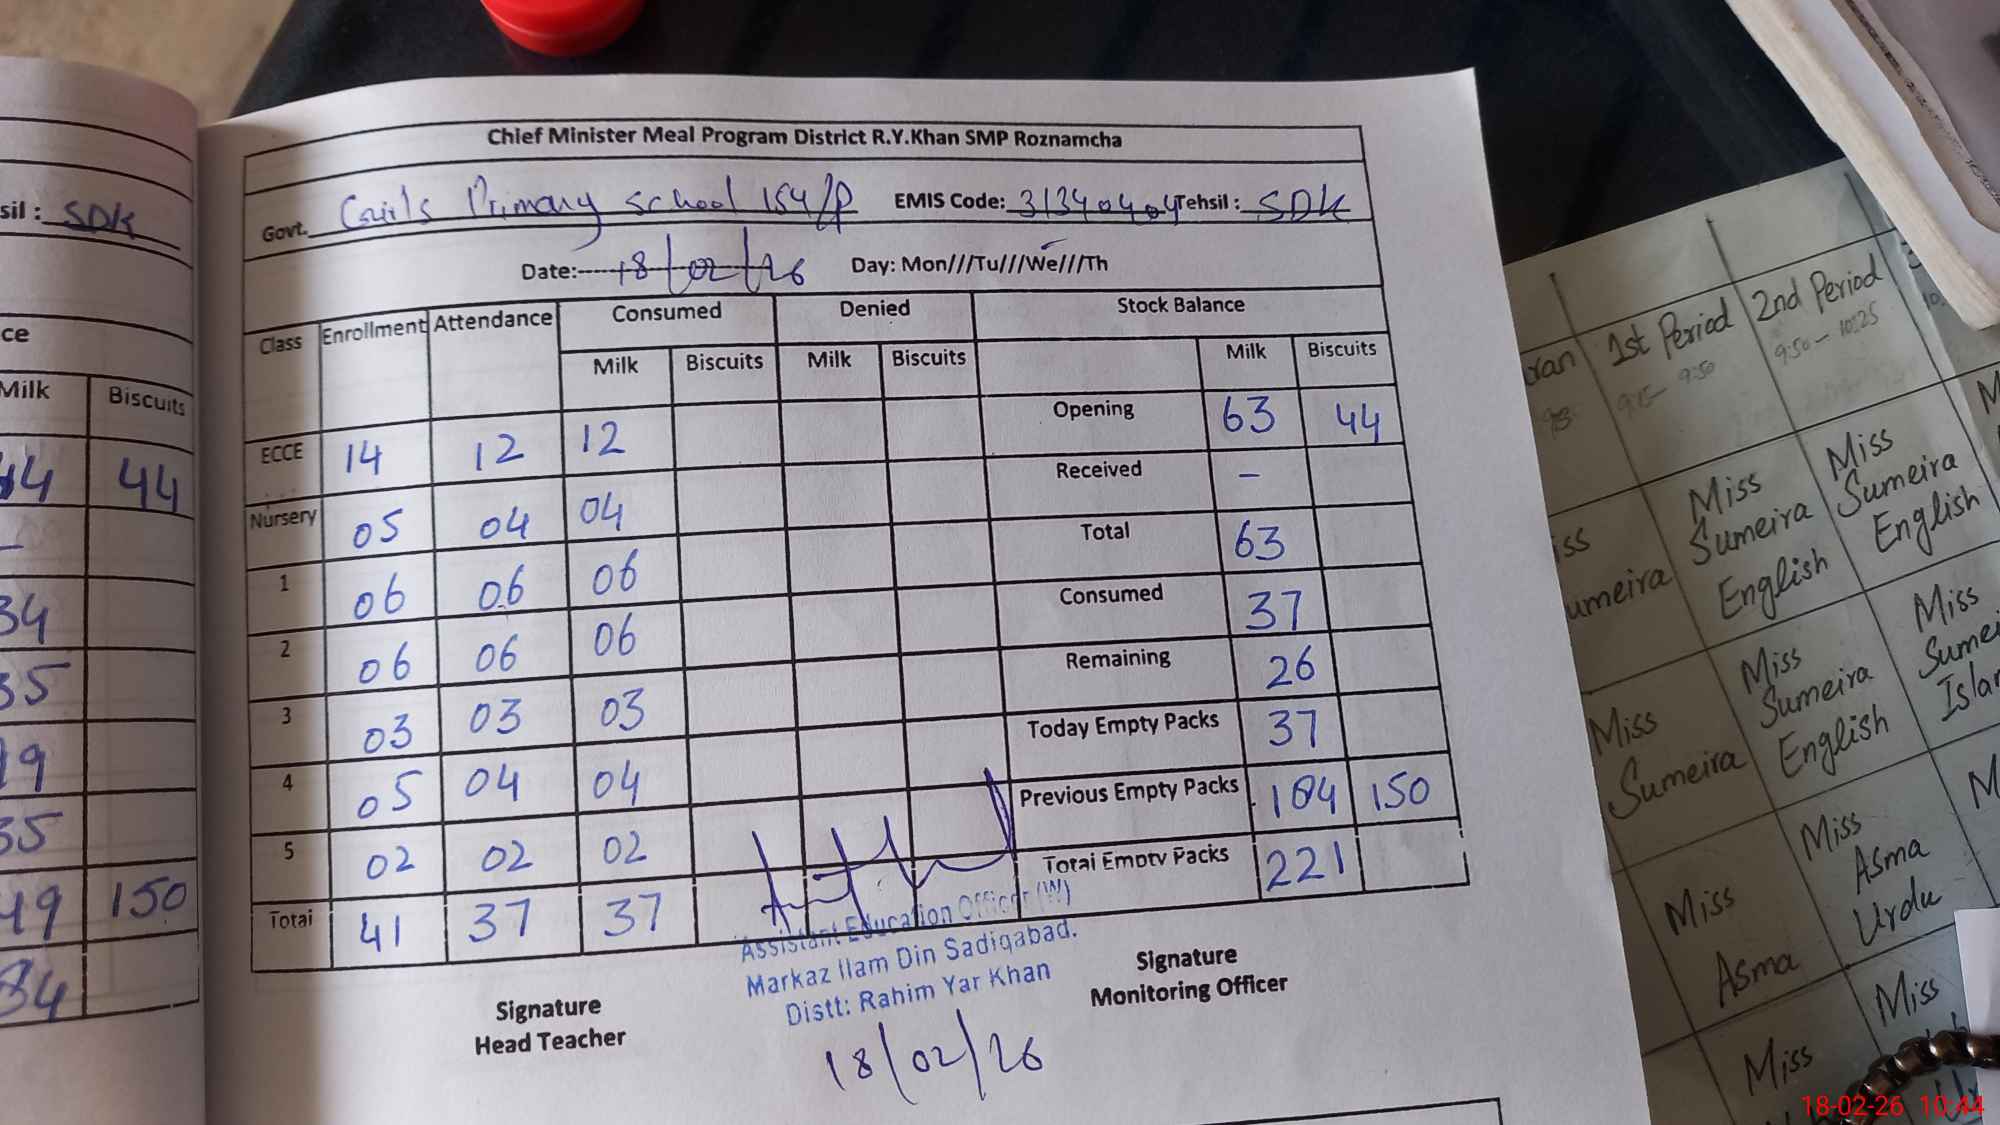 Chief Minister Meal Program District R.Y.Khan SMP Roznamcha
Govt. Girls Primary school 154/P EMIS Code: 31340404 Tehsil : SDK
Date: 18/02/26 Day: Mon///Tu///We///Th
Class Enrollment Attendance Consumed Denied Stock Balance
Milk Biscuits Milk Biscuits Milk Biscuits
Opening 63 44
ECCE 14 12 12
Received -
Nursery 05 04 04
Total 63
1 06 06 06
Consumed 37
2 06 06 06
Remaining 26
3 03 03 03
Today Empty Packs 37
4 05 04 04
Previous Empty Packs 184 150
5 02 02 02
Total Empty Packs 221
Total 41 37 37
Assistant Education Officer (W)
Markaz Ilam Din Sadiqabad.
Distt: Rahim Yar Khan
18/02/26
Signature
Head Teacher
Signature
Monitoring Officer
sil : SDK
ce
Milk Biscuits
44 44
-
34
35
19
35
49 150
84
1st Period 2nd Period
9:15- 9:50 9:50 - 10:25
Miss Miss
Sumeira Sumeira
English English
Miss Miss
Sumeira Sumeira
English
Miss Miss
Asma Asma
Urdu
Miss Miss
18-02-26 10:44